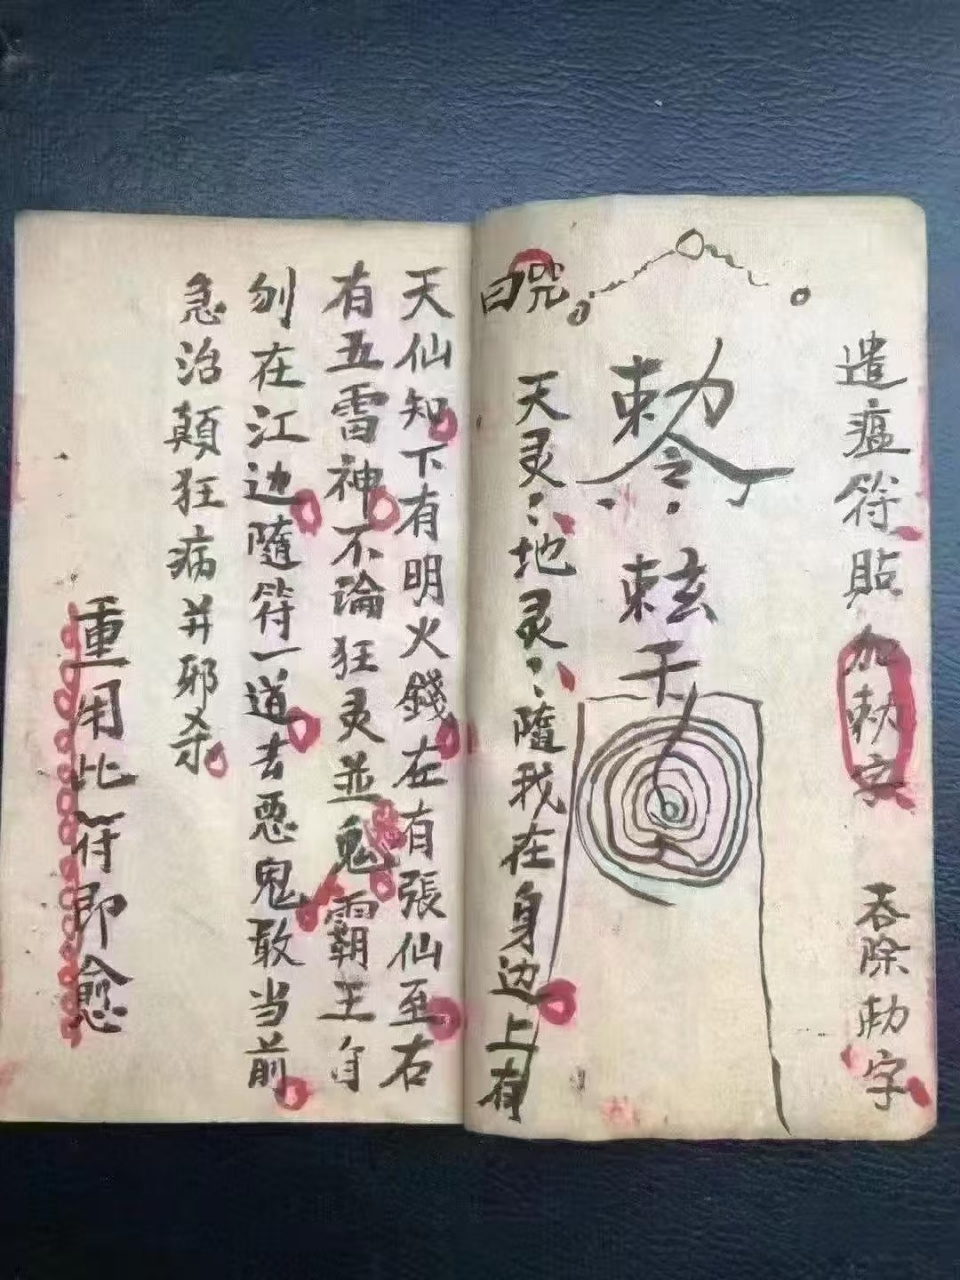 遣瘟符貼加勅字 吞除勅字
勅令
咒曰
天灵〻地灵〻隨我在身边上有
天仙知下有明火錢在有張仙至右
有五雷神不論狂灵並鬼霸王自
刎在江边隨符一道去惡鬼敢当前
急治顛狂病并邪杀
重用此符即愈